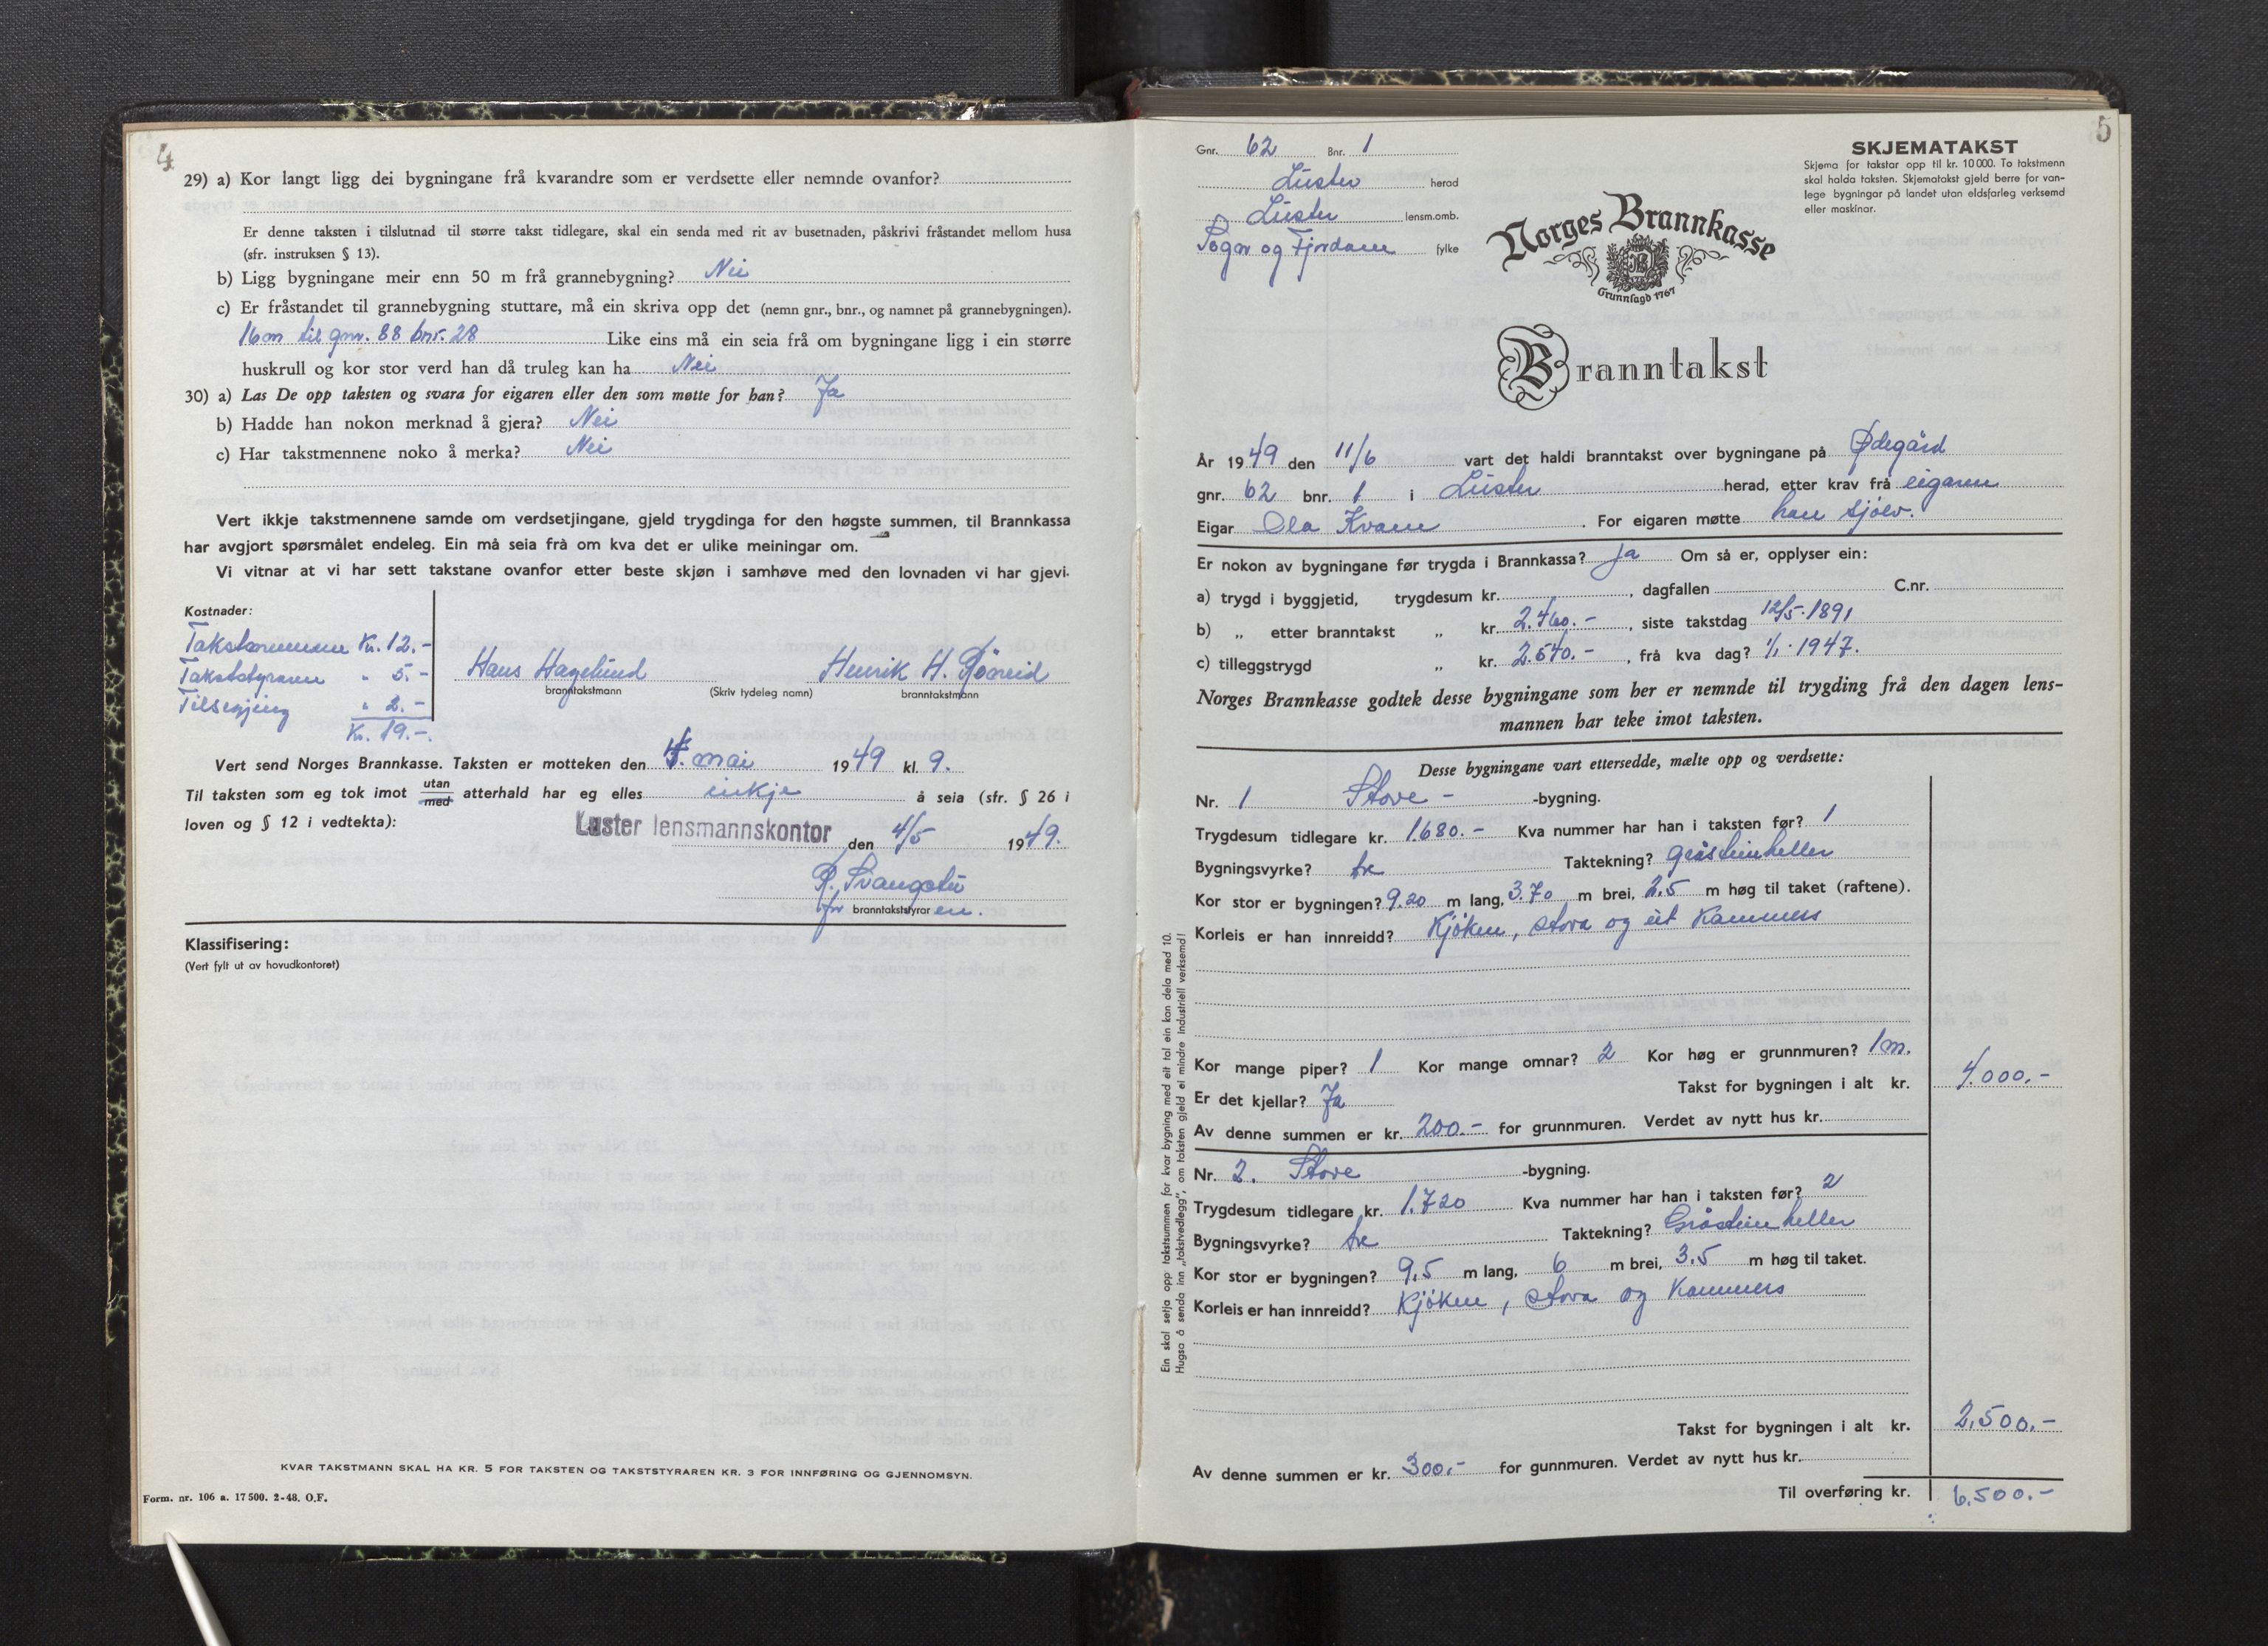 4
29) a) Kor langt ligg dei bygningane frå kvarandre som er verdsette eller nemnde ovanfor?
Er denne taksten i tilslutnad til større takst tidlegare, skal ein senda med rit av busetnaden, påskrivi fråstandet mellom husa
(sfr. instruksen § 13).
b) Ligg bygningane meir enn 50 m frå grannebygning? Nei
c) Er fråstandet til grannebygning stuttare, må ein skriva opp det (nemn gnr., bnr., og namnet på grannebygningen).
16m til gnr. 88 bnr. 28 Like eins må ein seia frå om bygningane ligg i ein større
huskrull og kor stor verd han då truleg kan ha Nei
30) a) Las De opp taksten og svara for eigaren eller den som møtte for han? Ja
b) Hadde han nokon merknad å gjera? Nei
c) Har takstmennene noko å merka? Nei
Vert ikkje takstmennene samde om verdsetjingane, gjeld trygdinga for den høgste summen, til Brannkassa
har avgjort spørsmålet endeleg. Ein må seia frå om kva det er ulike meiningar om.
Vi vitnar at vi har sett takstane ovanfor etter beste skjøn i samhøve med den lovnaden vi har gjevi.
Kostnader:
Takstmennene Kr. 12.-
Takststyraren " 5.-
Tilsegjing " 2.-
Kr. 19.-
Hans Hagelund Henrik H. Røneid
branntakstmann (Skriv tydeleg namn) branntakstmann
Vert send Norges Brannkasse. Taksten er motteken den 4. mai 1949 kl. 9.
Til taksten som eg tok imot utan med atterhald har eg elles inkje å seia (sfr. § 26 i
loven og § 12 i vedtekta):
Luster lensmannskontor den 4/5 1949.
for branntakststyraren.
Klassifisering:
(Vert fylt ut av hovudkontoret)
KVAR TAKSTMANN SKAL HA KR. 5 FOR TAKSTEN OG TAKSTSTYRAREN KR. 3 FOR INNFØRING OG GJENNOMSYN.
Form. nr. 106 a. 17 500. 2-48. O.F.
5
Gnr. 62 Bnr. 1
Luster herad
Luster lensm.omb.
Sogn og Fjordane fylke
SKJEMATAKST
Skjema for takstar opp til kr. 10 000. To takstmenn
skal halda taksten. Skjematakst gjeld berre for van-
lege bygningar på landet utan eldsfarleg verksemd
eller maskinar.
Norges Brannkasse
Grunnlagd 1767
Branntakst
År 1949 den 11/6 vart det haldi branntakst over bygningane på Ødegård
gnr. 62 bnr. 1 i Luster herad, etter krav frå eigaren
Eigar Ola Kvam. For eigaren møtte han sjølv.
Er nokon av bygningane før trygda i Brannkassa? Ja Om så er, opplyser ein:
a) trygd i byggjetid, trygdesum kr. , dagfallen C.nr.
b) „ etter branntakst „ kr. 2.460.- , siste takstdag 12/5.1891
c) tilleggstrygd „ kr. 2.540.- , frå kva dag? 1/1.1947.
Norges Brannkasse godtek desse bygningane som her er nemnde til trygding frå den dagen lens-
mannen har teke imot taksten.
Desse bygningane vart ettersedde, mælte opp og verdsette:
Nr. 1 Stove- -bygning.
Trygdesum tidlegare kr. 1.680.- Kva nummer har han i taksten før? 1
Bygningsvyrke? tre Taktekning? gråsteinheller
Kor stor er bygningen? 9.20 m lang, 3.70 m brei, 2.5 m høg til taket (raftene).
Korleis er han innreidd? Kjøken, stova og eit kammers
Kor mange piper? 1 Kor mange omnar? 2 Kor høg er grunnmuren? 1m.
Er det kjellar? Ja Takst for bygningen i alt kr. 4.000.-
Av denne summen er kr. 200.- for grunnmuren. Verdet av nytt hus kr.
Nr. 2. Stove -bygning.
Trygdesum tidlegare kr. 1.720 Kva nummer har han i taksten før? 2
Bygningsvyrke? tre Taktekning? Gråsteinheller
Kor stor er bygningen? 9,5 m lang, 6 m brei, 3.5 m høg til taket.
Korleis er han innreidd? Kjøken, stova og kammers
Takst for bygningen i alt kr. 2.500.-
Av denne summen er kr. 300.- for gunnmuren. Verdet av nytt hus kr.
Til overføring kr. 6.500.-
Ein skal setja opp takstsummen for kvar bygning med eit tal ein kan dela med 10.
Hugsa å senda inn „takstvedlegg", om taksten gjeld ei mindre industriell verksemd!